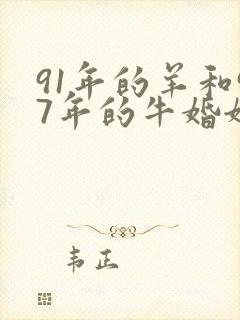 91年的羊和9
7年的牛婚姻
韦正